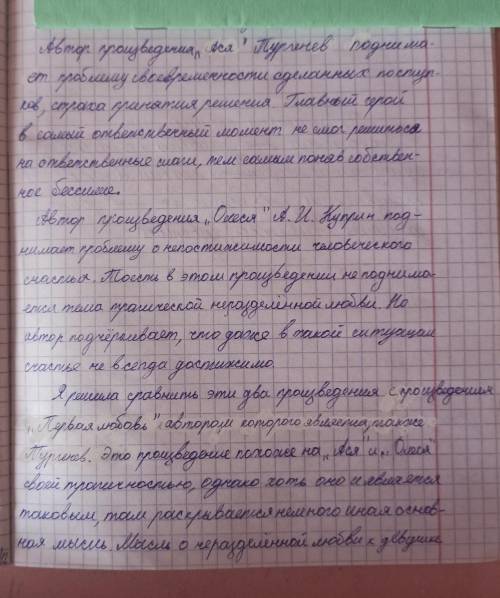 Автор произведения „Ася" Тургенев поднима-
ет проблему своевременности сделанных поступ-
ков, страха принятия решения. Главный герой
в самый ответственный момент не смог решиться
на ответственные шаги, тем самым поняв собствен-
ное бессилие.
Автор произведения „Олеся" А. И. Куприн под-
нимает проблему о непостижимости человеческого
счастья. То есть в этом произведении не поднима-
ется тема трагической неразделённой любви. Но
автор подчёркивает, что даже в такой ситуации
счастье не всегда достижимо.
Я решила сравнить эти два произведения с произведением
„Первая любовь", автором которого является также
Тургенев. Это произведение похоже на „Ася" и „Олеся"
своей трагичностью, однако хоть оно и является
таковым, там раскрывается немного иная основ-
ная мысль. Мысль о неразделенной любви к девушке